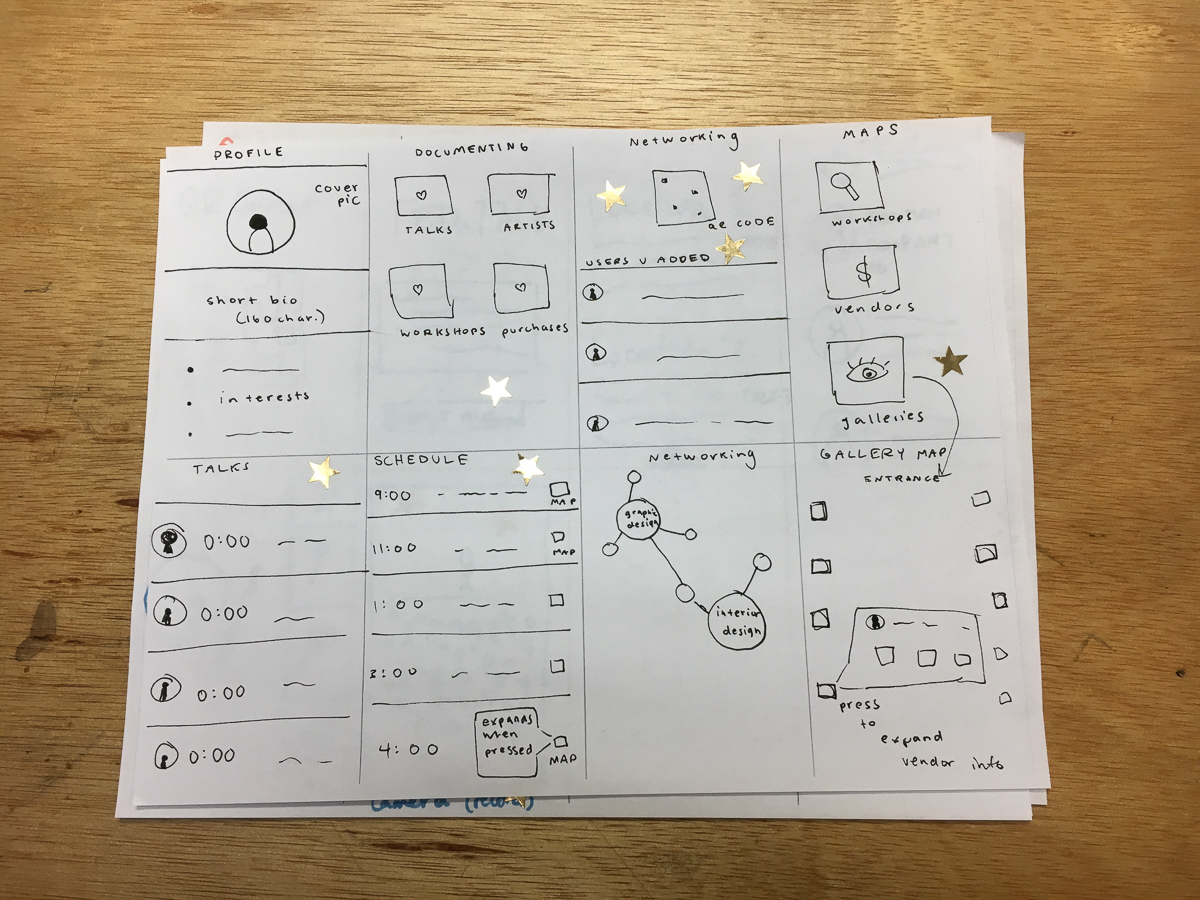 PROFILE
cover
pic
short bio
(160 char.)
interests
DOCUMENTING
TALKS
ARTISTS
WORKSHOPS
purchases
Networking
QR CODE
USERS U ADDED
MAPS
workshops
$
vendors
galleries
TALKS
0:00
0:00
0:00
0:00
SCHEDULE
9:00
MAP
11:00
MAP
1:00
3:00
4:00
expands
when
pressed
MAP
Networking
graphic
design
interior
design
GALLERY MAP
ENTRANCE
press
to
expand
vendor info
camera (record)